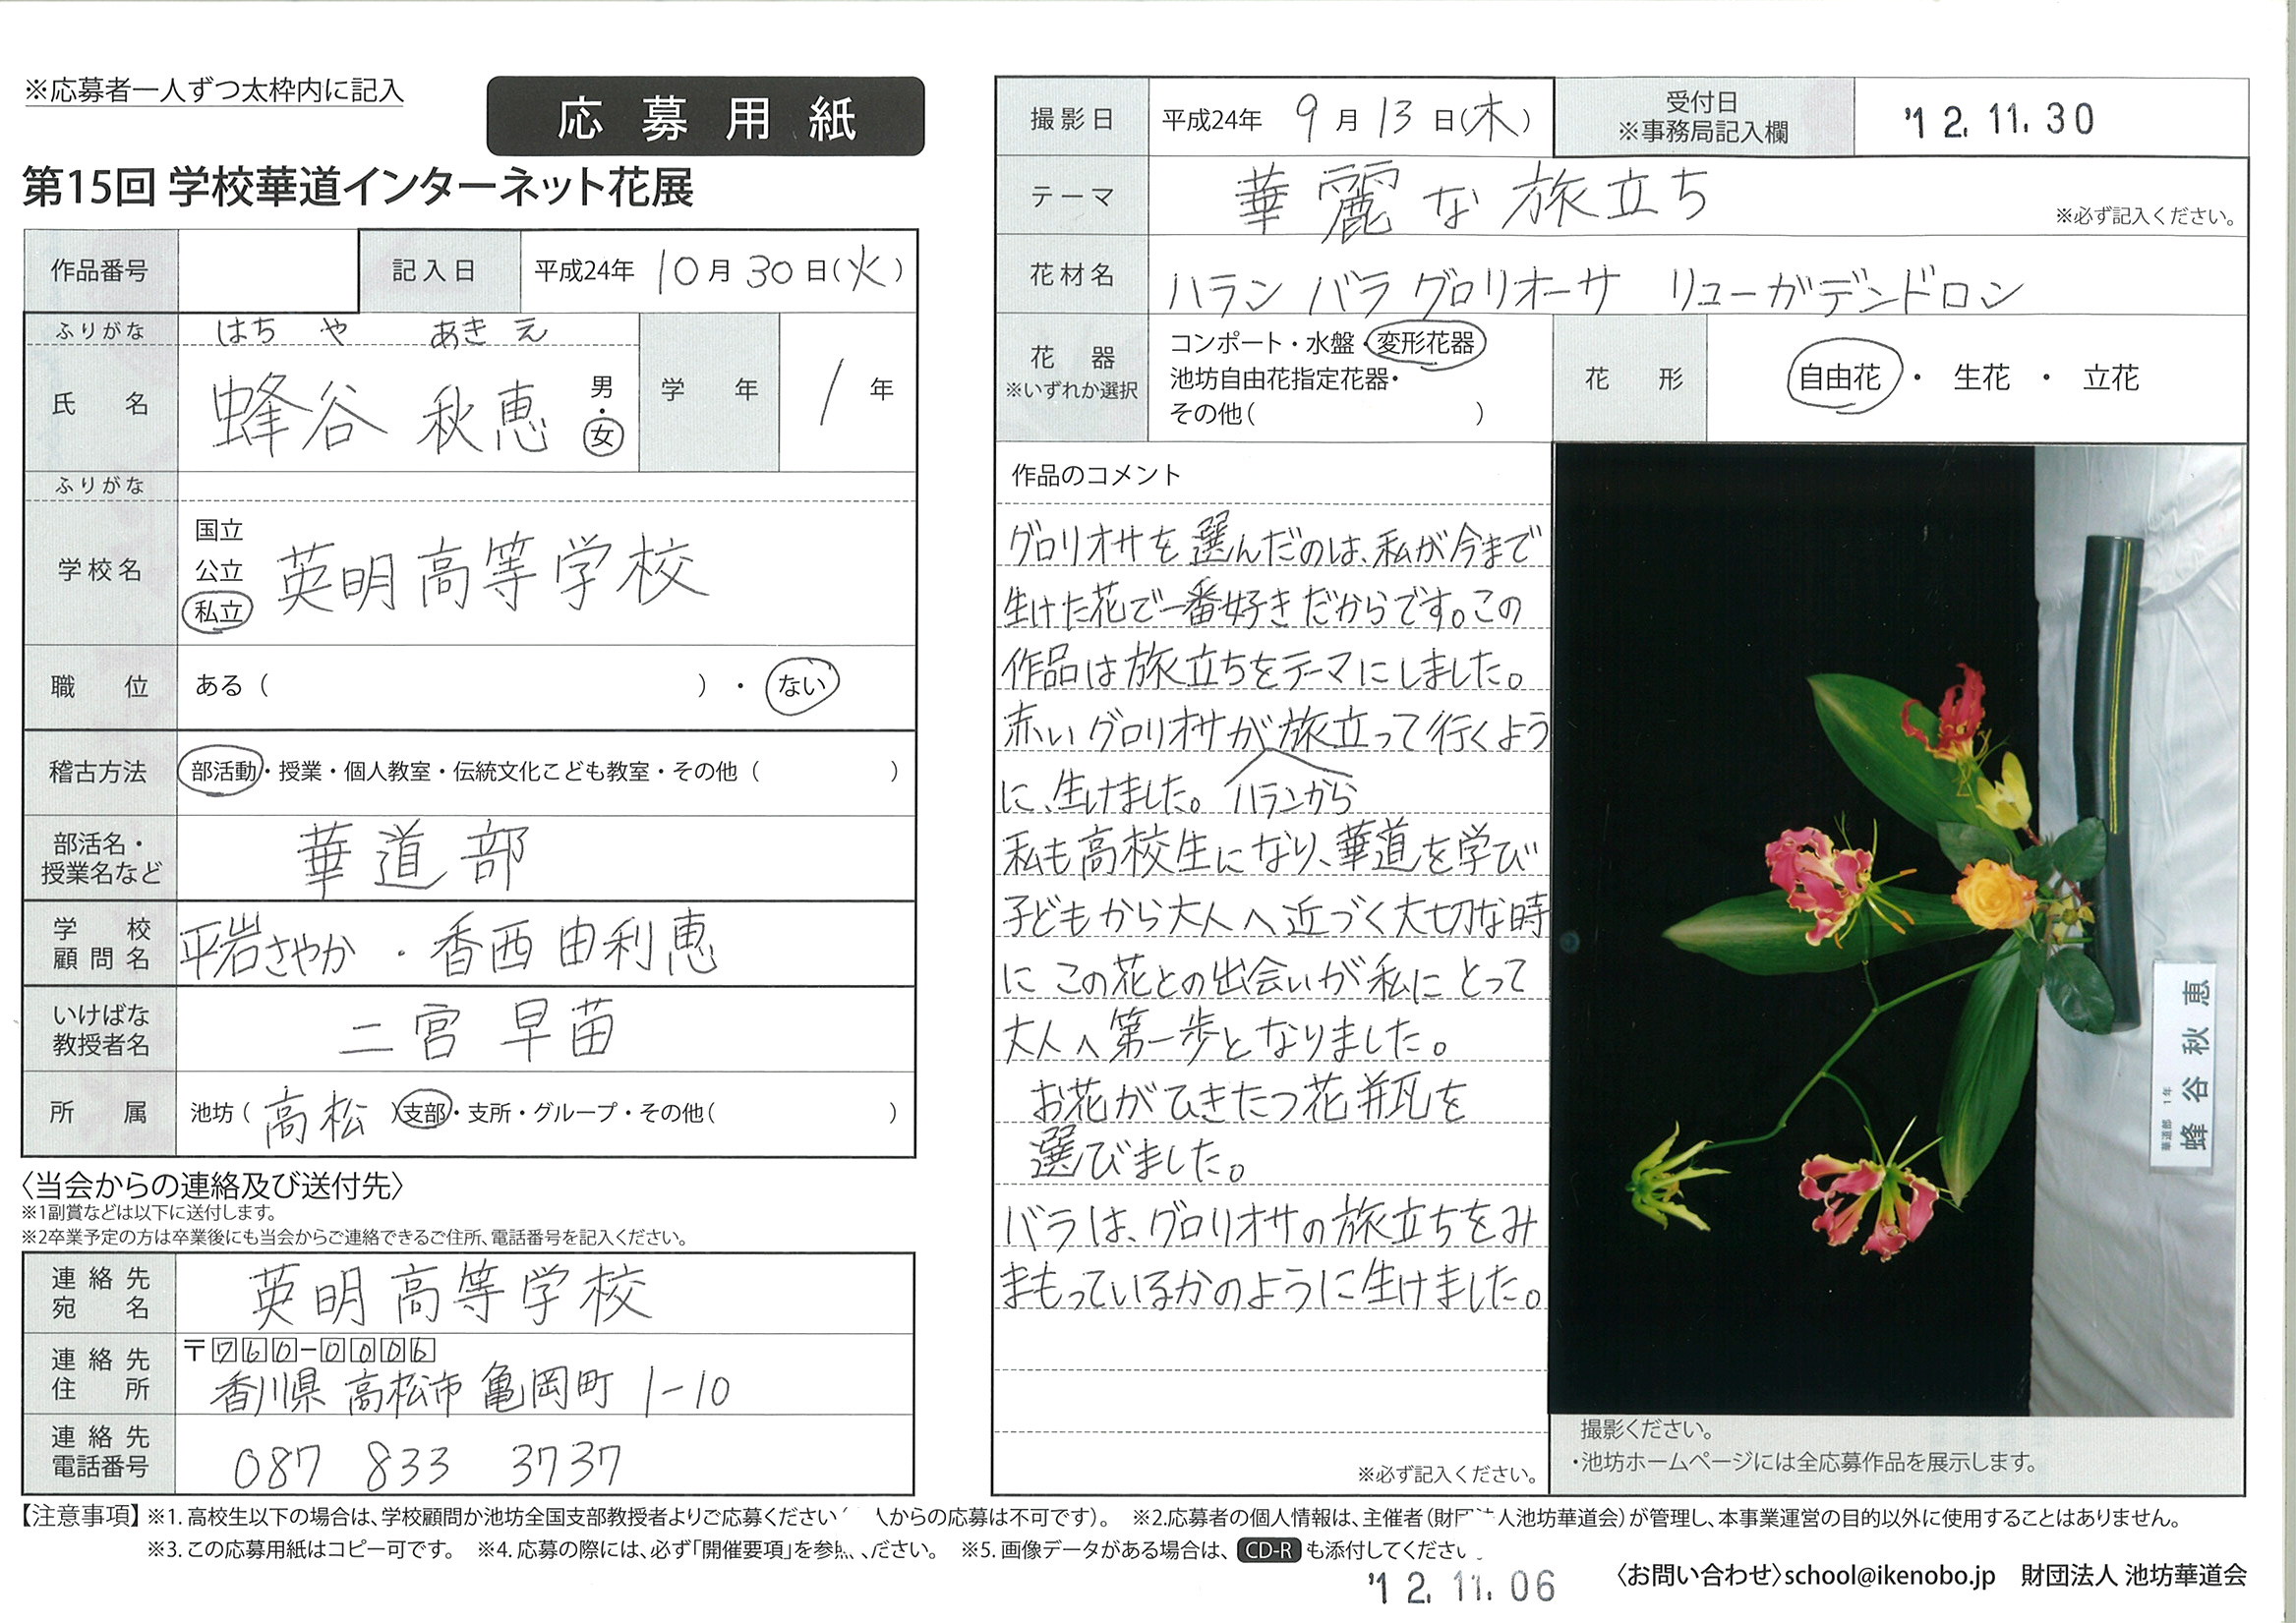 ※応募者一人ずつ太枠内に記入
応募用紙
第15回 学校華道インターネット花展
作品番号
記入日 平成24年 10月30日(火)
ふりがな はちや あきえ
氏名 蜂谷 秋恵 男・女
学年 1年
ふりがな
学校名 国立 公立 私立 英明高等学校
職位 ある( )・ない
稽古方法 部活動・授業・個人教室・伝統文化こども教室・その他( )
部活名・授業名など 華道部
学校顧問名 平岩さやか・香西由利恵
いけばな教授者名 二宮 早苗
所属 池坊(高松)支部・支所・グループ・その他( )
〈当会からの連絡及び送付先〉
※1副賞などは以下に送付します。
※2卒業予定の方は卒業後にも当会からご連絡できるご住所、電話番号を記入ください。
連絡先宛名 英明高等学校
連絡先住所 〒760-0006
香川県 高松市 亀岡町 1-10
連絡先電話番号 087 833 3737
撮影日 平成24年 9月13日(木)
受付日
※事務局記入欄
'12.11.30
テーマ 華麗な旅立ち
※必ず記入ください。
花材名 ハラン バラ グロリオーサ リューガデンドロン
花器
※いずれか選択
コンポート・水盤・変形花器
池坊自由花指定花器・
その他( )
花形 自由花・生花・立花
作品のコメント
グロリオサを選んだのは、私が今まで
生けた花で一番好きだからです。この
作品は旅立ちをテーマにしました。
赤いグロリオサが旅立って行くよう
に、生けました。 ハランから
私も高校生になり、華道を学び
子どもから大人へ近づく大切な時
にこの花との出会いが私にとって
大人へ第一歩となりました。
お花がひきたつ花瓶を
選びました。
バラは、グロリオサの旅立ちをみ
まもっているかのように生けました。
※必ず記入ください。
華道部 1年
蜂谷 秋恵
撮影ください。
・池坊ホームページには全応募作品を展示します。
【注意事項】※1.高校生以下の場合は、学校顧問か池坊全国支部教授者よりご応募ください 人からの応募は不可です)。 ※2.応募者の個人情報は、主催者(財団法人池坊華道会)が管理し、本事業運営の目的以外に使用することはありません。
※3.この応募用紙はコピー可です。 ※4.応募の際には、必ず「開催要項」を参照ください。 ※5.画像データがある場合は、CD-Rも添付してください。
'12.11.06
〈お問い合わせ〉school@ikenobo.jp 財団法人 池坊華道会